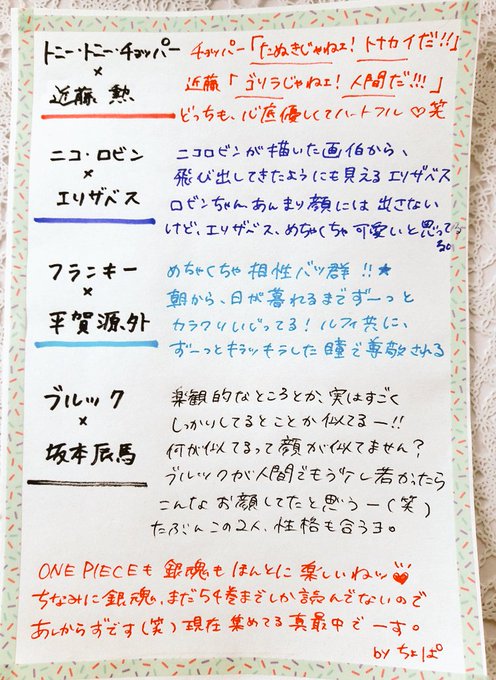 トニー・トニー・チョッパー
×
近藤 勲
チョッパー「たぬきじゃねェ！トナカイだ!!」
近藤「ゴリラじゃねェ！人間だ!!!」
どっちも、心底優しくてハートフル♡笑
ニコ・ロビン
×
エリザベス
ニコロビンが描いた画伯から、
飛び出してきたようにも見えるエリザベス
ロビンちゃんあんまり顔には出さない
けど、エリザベス、めちゃくちゃ可愛いと思ってる
フランキー
×
平賀源外
めちゃくちゃ相性バツ群!!★
朝から、日が暮れるまでずーっと
カラクリいじってる！ルフィ共に、
ずーっとキラッキラした瞳で尊敬される
ブルック
×
坂本辰馬
楽観的なところとか、実はすごく
しっかりしてるとことか似てるー!!
何が似てるって顔が似てません？
ブルックが人間でもう少し若かったら
こんなお顔してたと思うー(笑)
たぶんこの2人、性格も合うヨ。
ONE PIECEも銀魂もほんとに楽しいねッ♡
ちなみに銀魂、まだ54巻までしか読んでないので
あしからずです(笑)現在集めてる真最中でーす。
by ちょぱ